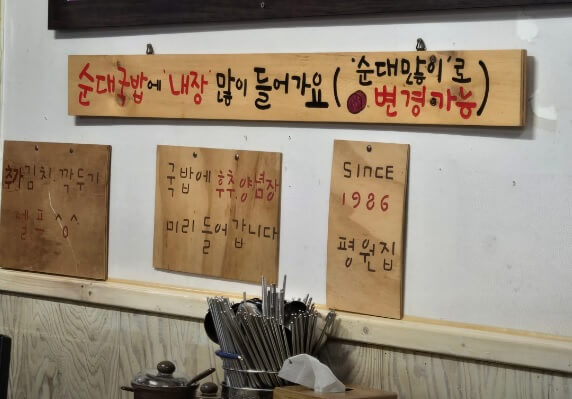 순대국밥에 '내장' 많이 들어가요 ('순대많이'로
변경가능)
추가김치 깍두기
셀프 ^^
국밥에 후추, 양념장
미리 들어갑니다
SINCE
1986
평원집